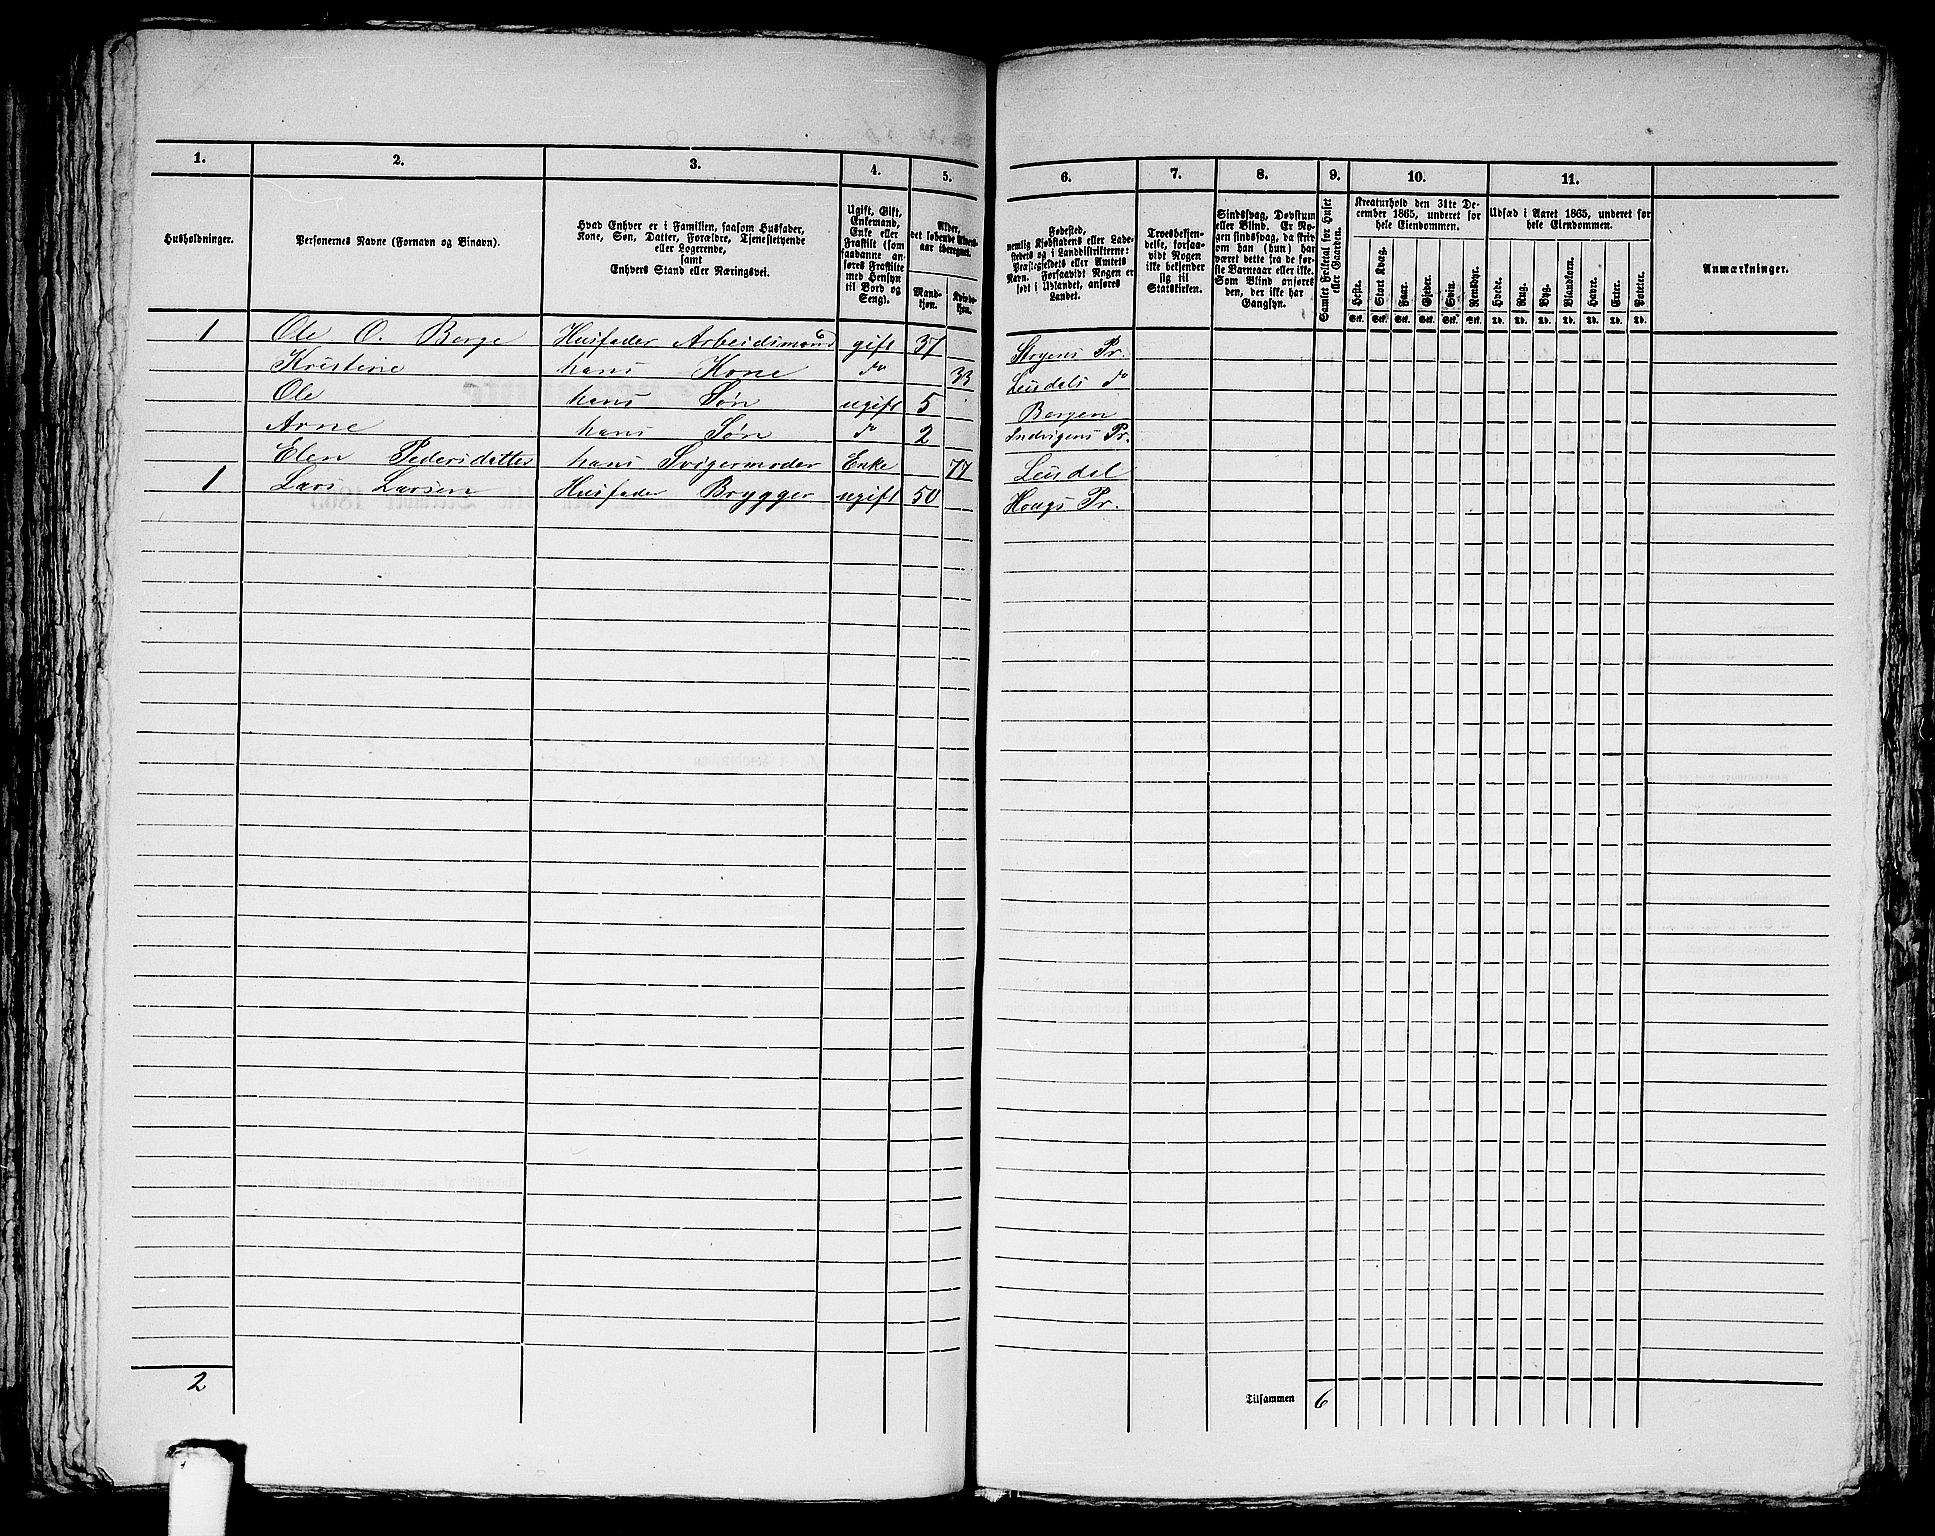 1.
2.
3.
4.
5.
6.
7.
8.
9.
10.
11.
Husholdninger.
Personernes Navne (Fornavn og Binavn).
Hvad Enhver er i Familien, saasom Husfader,
Kone, Søn, Datter, Forældre, Tjenestetyende
eller Logerende,
samt
Enhvers Stand eller Næringsvei.
Ugift, Gift,
Enkemand,
Enke eller
Fraskilt (som
saadanne an-
føres Fraskilte
med Hensyn
til Bord og
Seng).
Alder,
det løbende Alders-
aar iberegnet.
Mand-
kjøn.
Kvinde-
kjøn.
Fødested,
nemlig Kjøbstadens eller Lade-
stedets og i Landdistrikterne:
Præstegjeldets eller Amtets
Navn. Forsaavidt Nogen er
født i Udlandet, anføres
Landet.
Troesbekjen-
delse, forsaa-
vidt Nogen
ikke bekjender
sig til
Statskirken.
Sindssvag, Døvstum
eller Blind. Er No-
gen sindssvag, da skriv
om han (hun) har
været dette fra de før-
ste Barneaar eller ikke.
Som Blind anføres
den, der ikke har
Gangsyn.
9.
Samlet Folketal for Huset
eller Gaarden.
Kreaturhold den 31te De-
cember 1865, underet for
hele Eiendommen.
Heste. Stort Kvæg. Faar. Gjeder. Sviin. Rensdyr.
Stk. Stk. Stk. Stk. Stk. Stk.
Udsæd i Aaret 1865, underet for
hele Eiendommen.
Hvede. Rug. Byg. Blandkorn. Havre. Erter. Poteter.
Td. Td. Td. Td. Td. Td. Td.
Anmærkninger.
1 Ole O. Berge Husfader Arbeidsmand gift 37 Stryens Pr.
Kristine hans Kone do 33 Leirdals do
Ole hans Søn ugift 5 Bergen
Arne hans Søn do 2 Indvigens Pr.
Elen Pedersdatter hans Svigermoder Enke 77 Leirdal
1 Lars Larsen Husfader Brygger ugift 50 Hougs Pr.
2
Tilsammen 6